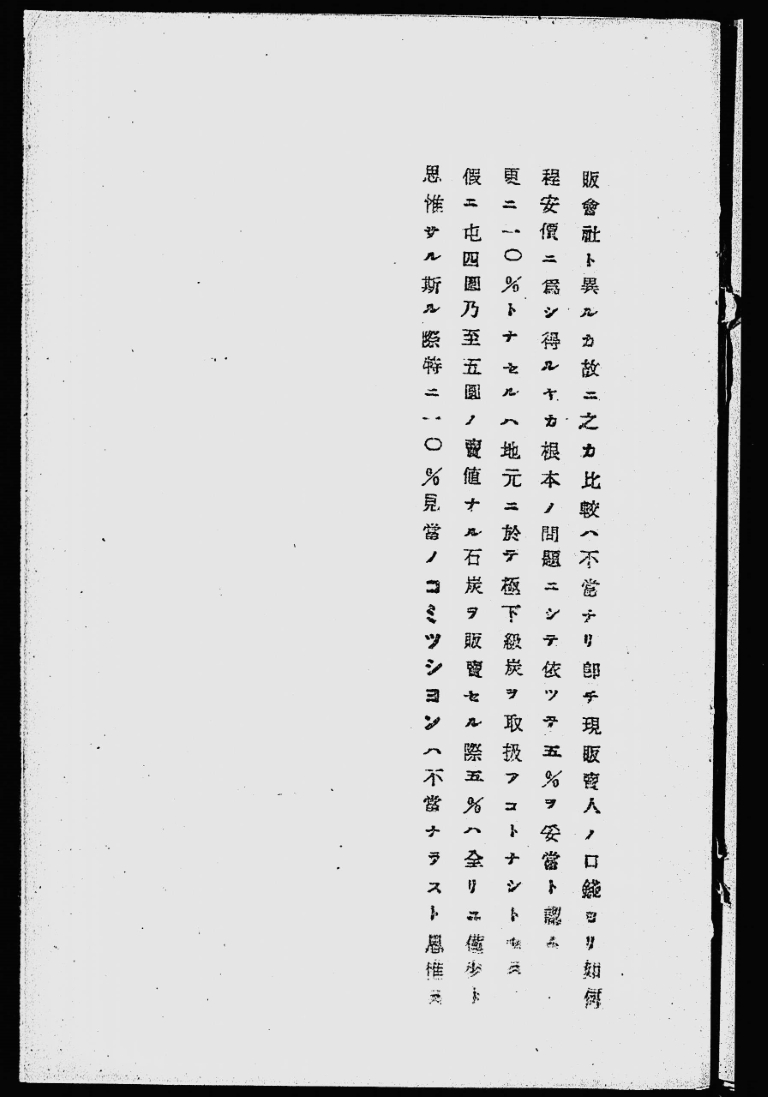 販會社ト異ルカ故ニ之カ比較ハ不當ナリ卽チ現販賣人ノ口錢ヨリ如何
程安價ニ爲シ得ルヤカ根本ノ問題ニシテ依ツテ五%ヲ妥當ト認ム
更ニ一〇%トナセルハ地元ニ於テ極下級炭ヲ取扱フコトナシトセス
假ニ屯四圓乃至五圓ノ賣値ナル石炭ヲ販賣セル際五%ハ全リニ僅少ト
思惟サル斯ル際特ニ一〇%見當ノコミツシヨンハ不當ナラスト思惟ス